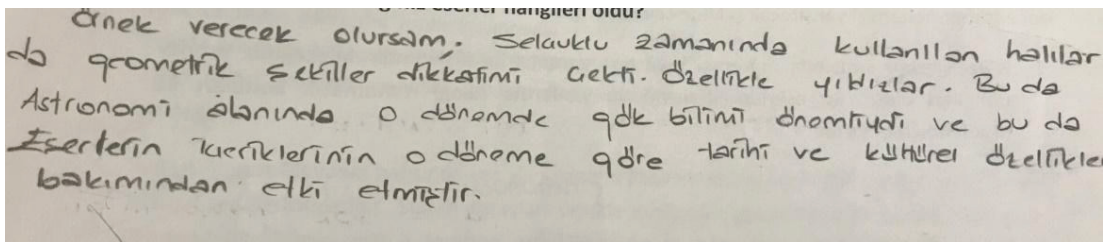 eserler hangileri oldu?
Örnek verecek olursam. Selcuklu zamanında kullanılan halılar
da geometrik şekiller dikkatimi çekti. Özellikle yıldızlar. Bu da
Astronomi alanında o dönemde gök bilimi önemliydi ve bu da
Eserlerin içeriklerinin o döneme göre tarihi ve kültürel özellikle
bakımından etki etmiştir.